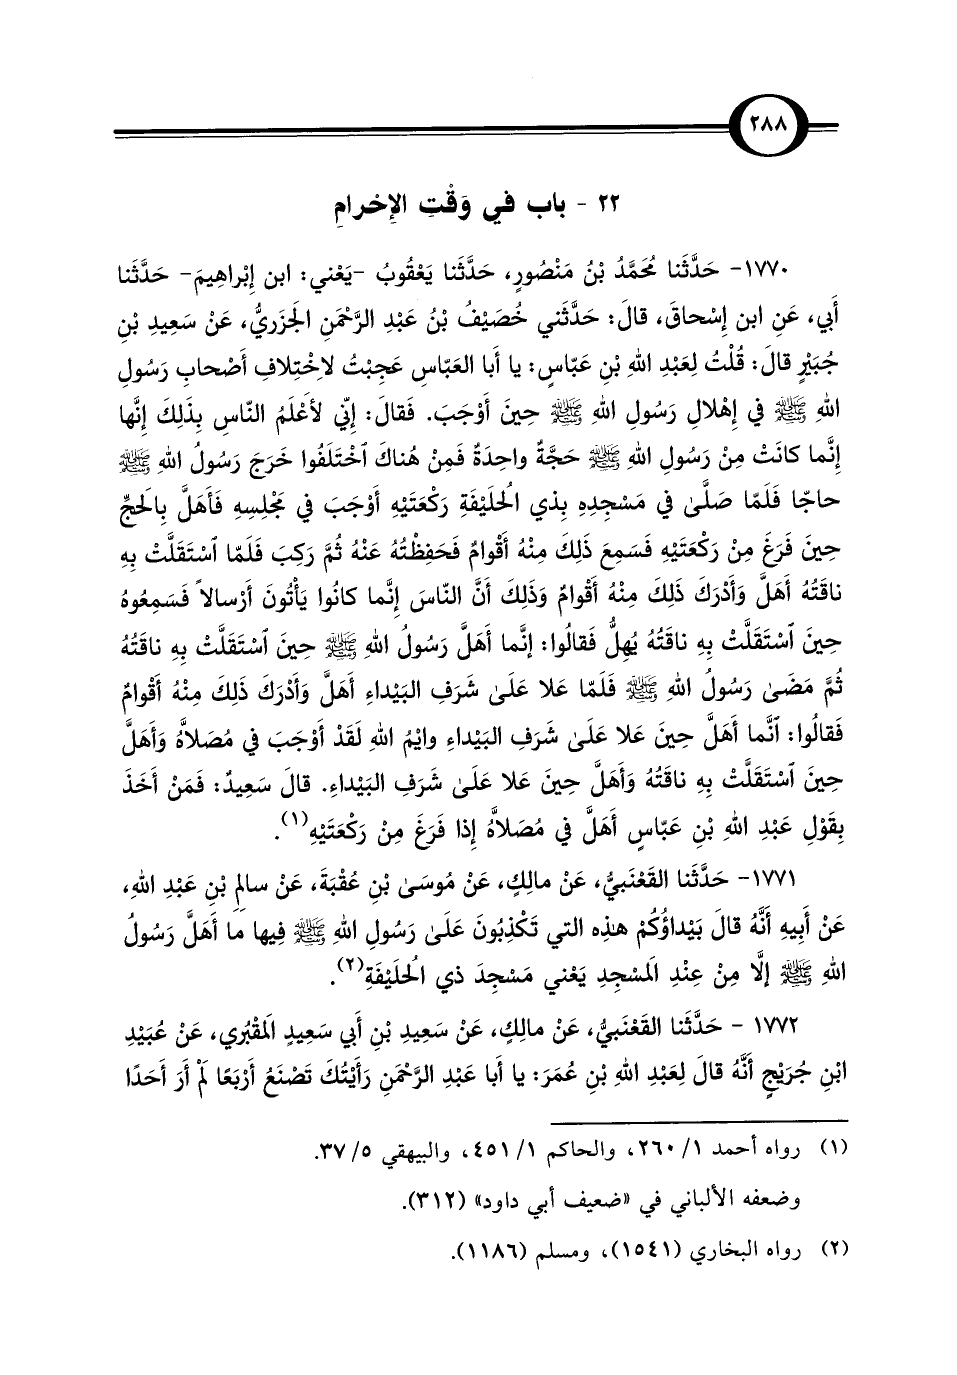 ٢٨٨
٢٢ - باب في وَقْتِ الإِحْرامِ
١٧٧٠- حَدَّثَنا مُحَمَّدُ بْنُ مَنْصُورٍ، حَدَّثَنا يَعْقُوبُ -يَعْني: ابن إِبْراهِيمَ- حَدَّثَنا
أَبي، عَنِ ابن إِسْحاقَ، قالَ: حَدَّثَني خُصَيْفُ بْنُ عَبْدِ الرَّحْمَنِ الجَزَريُّ، عَنْ سَعِيدِ بْنِ
جُبَيْرٍ قالَ: قُلْتُ لِعَبْدِ اللهِ بْنِ عَبّاسٍ: يا أَبا العَبّاسِ عَجِبْتُ لاِخْتِلافِ أَصْحابِ رَسُولِ
اللهِ ﷺ في إِهْلالِ رَسُولِ اللهِ ﷺ حِينَ أَوْجَبَ. فَقالَ: إِنّي لأَعْلَمُ النّاسِ بِذَلِكَ إِنَّها
إِنَّما كانَتْ مِنْ رَسُولِ اللهِ ﷺ حَجَّةٌ واحِدَةٌ فَمِنْ هُناكَ ٱخْتَلَفُوا خَرَجَ رَسُولُ اللهِ ﷺ
حاجّا فَلَمّا صَلَّىٰ في مَسْجِدِهِ بِذي الحُلَيْفَةِ رَكْعَتَيْهِ أَوْجَبَ في مَجْلِسِهِ فَأَهَلَّ بِالحَجِّ
حِينَ فَرَغَ مِنْ رَكْعَتَيْهِ فَسَمِعَ ذَلِكَ مِنْهُ أَقْوامٌ فَحَفِظْتُهُ عَنْهُ ثُمَّ رَكِبَ فَلَمّا ٱسْتَقَلَّتْ بِهِ
ناقَتُهُ أَهَلَّ وَأَدْرَكَ ذَلِكَ مِنْهُ أَقْوامٌ وَذَلِكَ أَنَّ النّاسَ إِنَّما كانُوا يَأْتُونَ أَرْسالاً فَسَمِعُوهُ
حِينَ ٱسْتَقَلَّتْ بِهِ ناقَتُهُ يُهِلُّ فَقالُوا: إنَّما أَهَلَّ رَسُولُ اللهِ ﷺ حِينَ ٱسْتَقَلَّتْ بِهِ ناقَتُهُ
ثُمَّ مَضَىٰ رَسُولُ اللهِ ﷺ فَلَمّا عَلا عَلَىٰ شَرَفِ البَيْداءِ أَهَلَّ وَأَدْرَكَ ذَلِكَ مِنْهُ أَقْوامٌ
فَقالُوا: ٱنَّما أَهَلَّ حِينَ عَلا عَلَىٰ شَرَفِ البَيْداءِ وايْمُ اللهِ لَقَدْ أَوْجَبَ في مُصَلاَّهُ وَأَهَلَّ
حِينَ ٱسْتَقَلَّتْ بِهِ ناقَتُهُ وَأَهَلَّ حِينَ عَلا عَلَىٰ شَرَفِ البَيْداءِ. قالَ سَعِيدٌ: فَمَنْ أَخَذَ
بِقَوْلِ عَبْدِ اللهِ بْنِ عَبّاسٍ أَهَلَّ في مُصَلاَّهُ إِذا فَرَغَ مِنْ رَكْعَتَيْهِ(١).
١٧٧١- حَدَّثَنا القَعْنَبيُّ، عَنْ مالِكٍ، عَنْ مُوسَىٰ بْنِ عُقْبَةَ، عَنْ سالِمِ بْنِ عَبْدِ اللهِ،
عَنْ أَبِيهِ أَنَّهُ قالَ بَيْداؤُكُمْ هٰذِه التي تَكْذِبُونَ عَلَىٰ رَسُولِ اللهِ ﷺ فِيها ما أَهَلَّ رَسُولُ
اللهِ ﷺ إِلَّا مِنْ عِنْدِ المَسْجِدِ يَعْني مَسْجِدَ ذي الحُلَيْفَةِ(٢).
١٧٧٢ - حَدَّثَنا القَعْنَبيُّ، عَنْ مالِكٍ، عَنْ سَعِيدِ بْنِ أَبي سَعِيدٍ المَقْبُري، عَنْ عُبَيْدِ
ابْنِ جُرَيْجٍ أَنَّهُ قالَ لِعَبْدِ اللهِ بْنِ عُمَرَ: يا أَبا عَبْدِ الرَّحْمَنِ رَأَيْتُكَ تَصْنَعُ أَرْبَعًا لَمْ أَرَ أَحَدًا
(١) رواه أحمد ١/ ٢٦٠، والحاكم ١/ ٤٥١، والبيهقي ٥/ ٣٧.
وضعفه الألباني في «ضعيف أبي داود» (٣١٢).
(٢) رواه البخاري (١٥٤١)، ومسلم (١١٨٦).